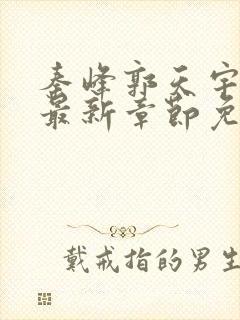 秦峰郭天宇
最新章节免
戴戒指的男生